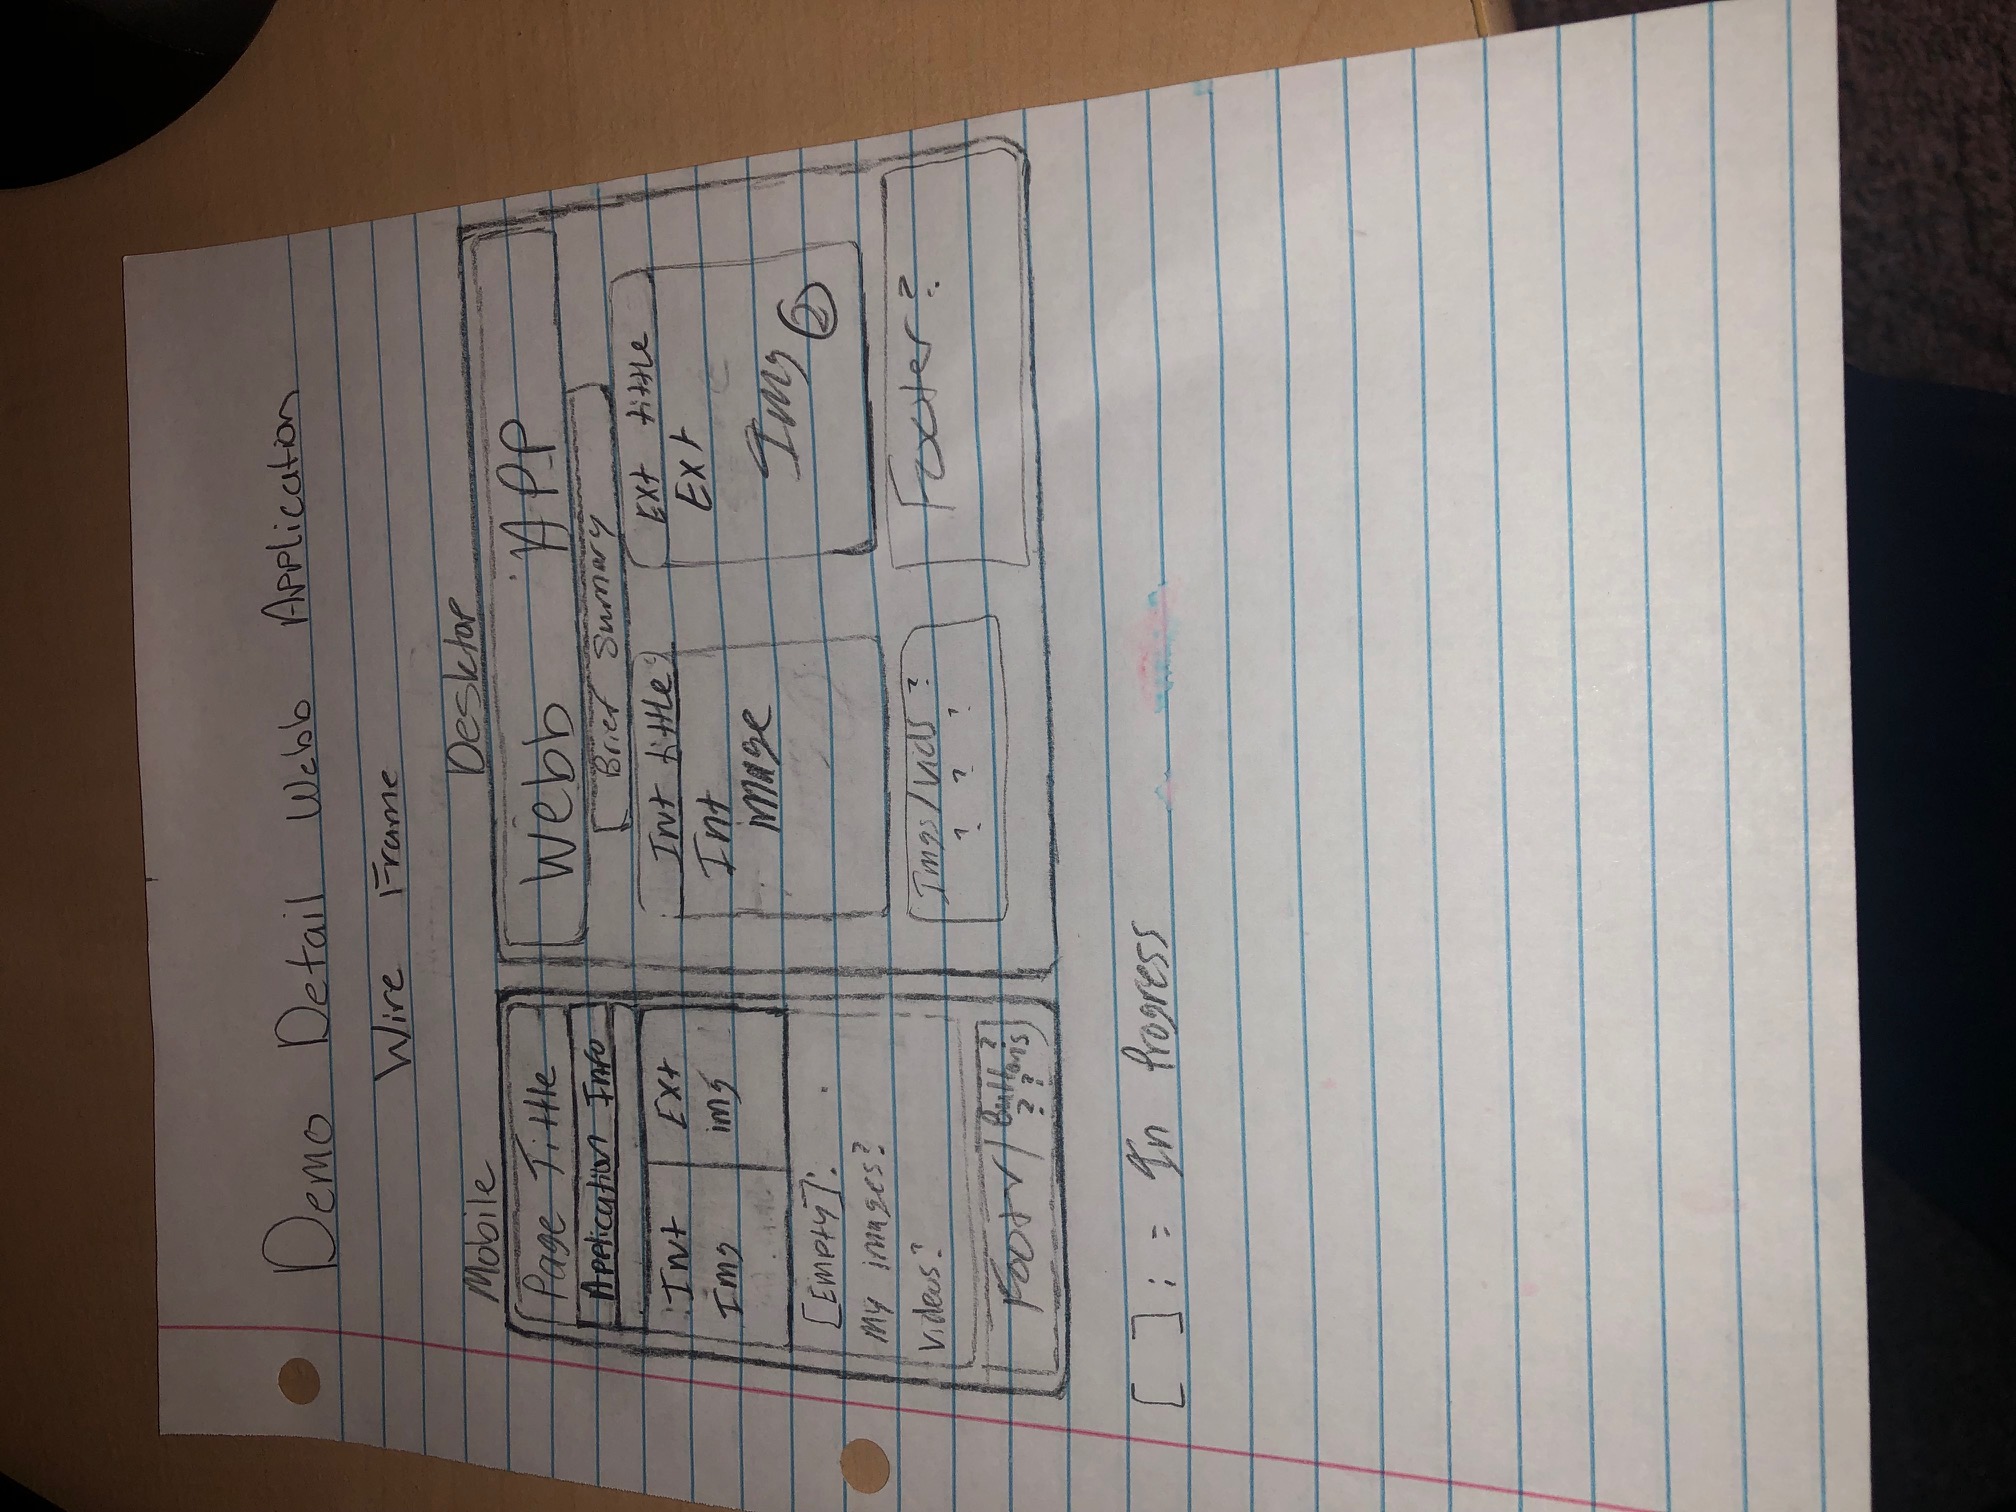 Demo Detail Webb Application
Wire Frame
Mobile
Page Tittle
Application Info
Int
Img
Ext
img
[Empty]:
My images?
Videos?
Footer/Buttons?
? ?
Desktop
Webb APP
Brief Summary
Int tittle:
Int
image
Ext tittle
Ext
Img
2
Imgs/Vids ?
? ? ?
Footer?
[ ]; = In Progress